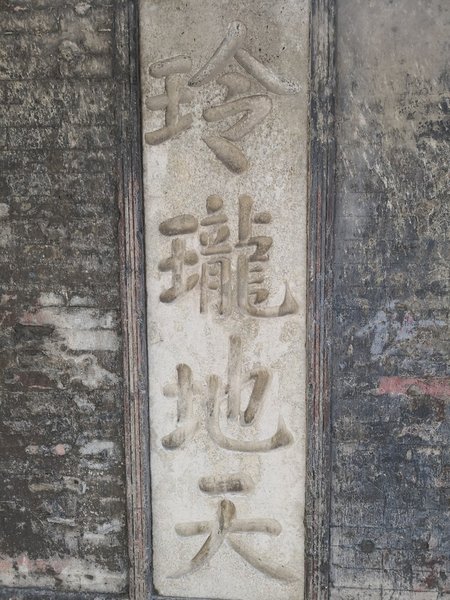 玲瓏地天